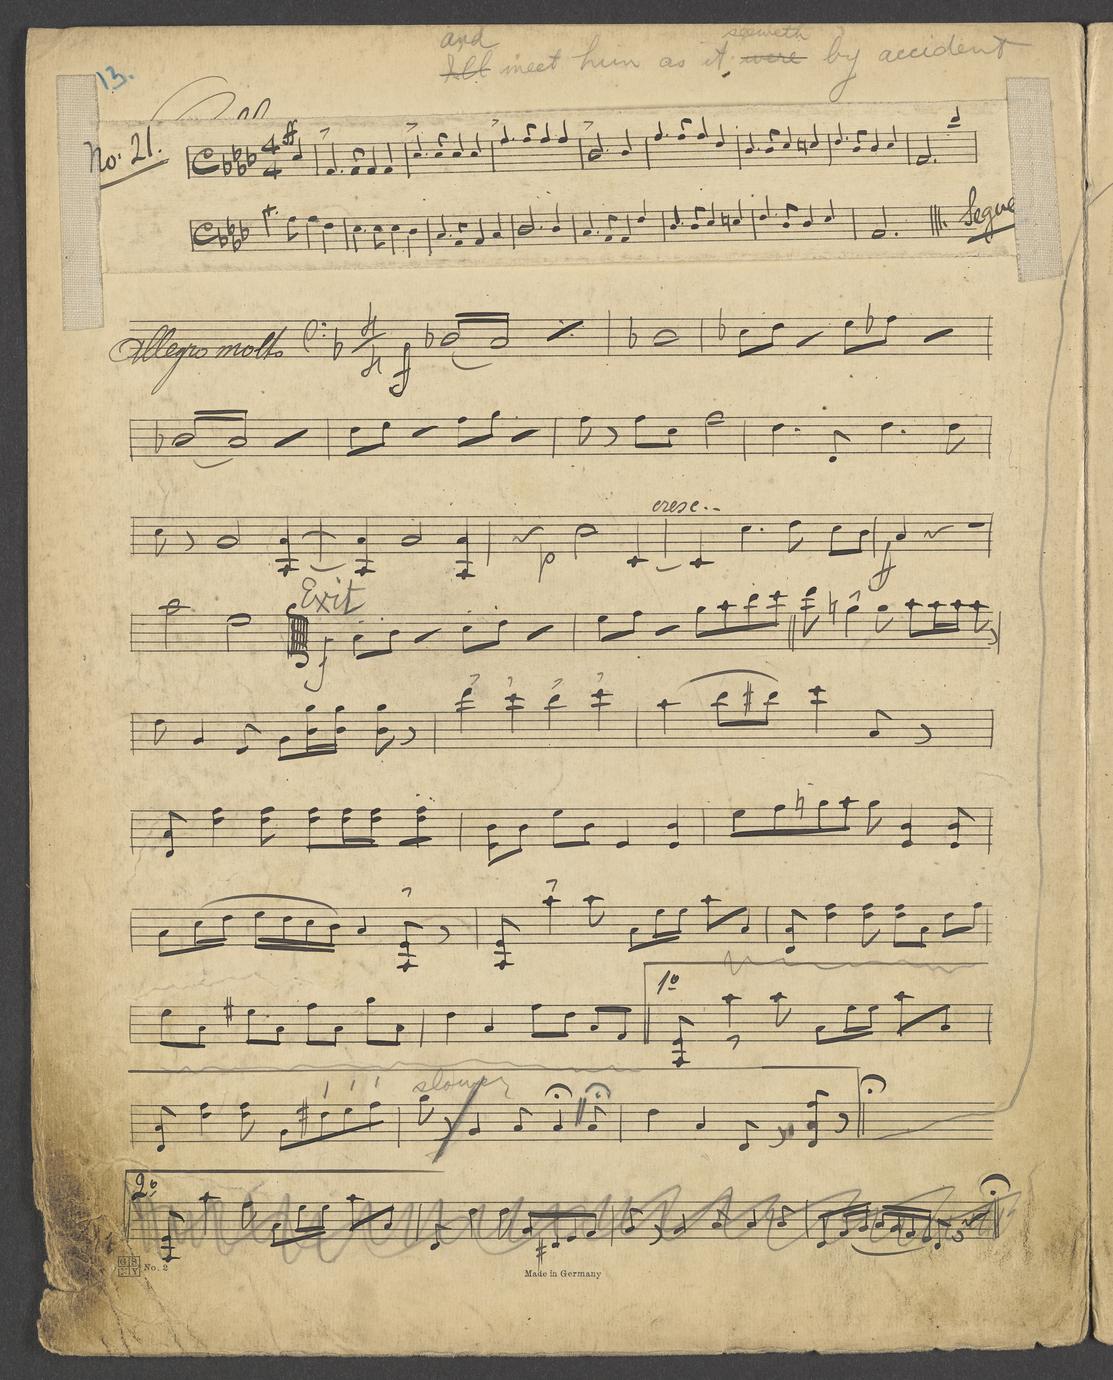 and seemeth
I'll meet him as it were by accident
13.
No. 21.
4
4
ff
Segue
Allegro molto
4
4
f
cresc..
p
f
Exit
f
1o
slower
2o
No. 2
Made in Germany